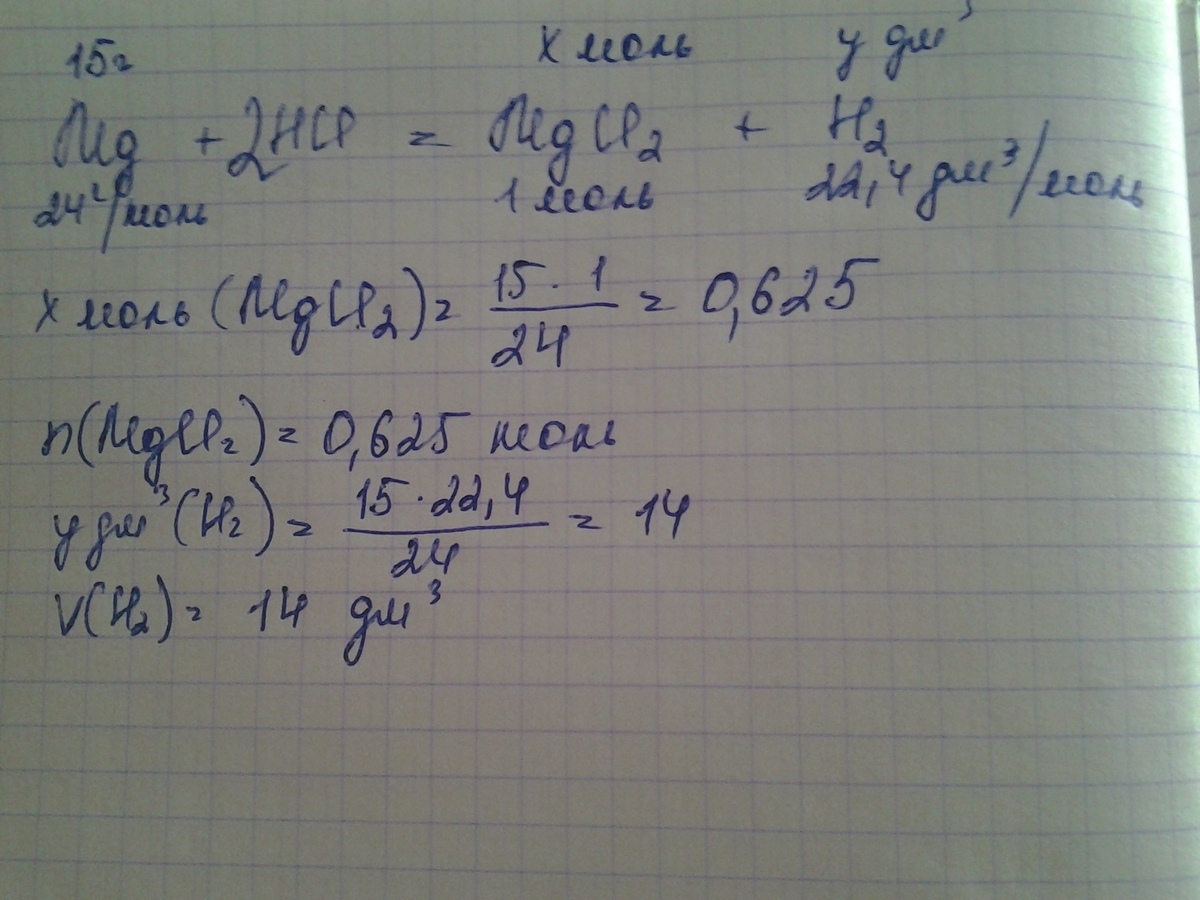 15г х моль у дм³
Mg + 2HCl = MgCl₂ + H₂
24 г/моль 1 моль 22,4 дм³/моль
х моль (MgCl₂) = 15 · 1 / 24 = 0,625
n(MgCl₂) = 0,625 моль
у дм³ (H₂) = 15 · 22,4 / 24 = 14
V(H₂) = 14 дм³